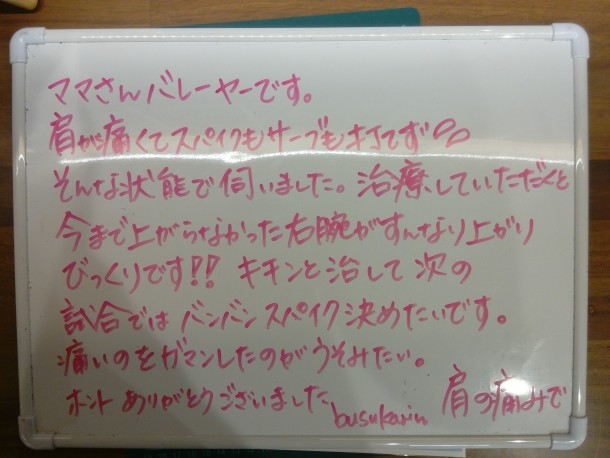 ママさんバレーヤーです。
肩が痛くてスパイクもサーブも打てず
そんな状態で伺いました。治療していただくと
今まで上がらなかった右腕がすんなり上がり
びっくりです!! キチンと治して次の
試合ではバンバンスパイク決めたいです。
痛いのをガマンしたのがうそみたい。
ホントありがとうございました。
busukarin 肩の痛みで